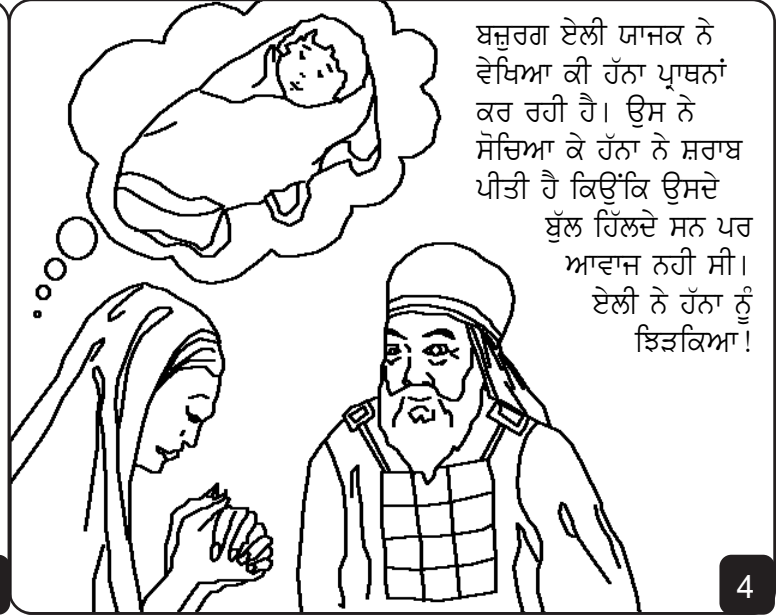 ਬਜ਼ੁਰਗ ਏਲੀ ਯਾਜਕ ਨੇ
ਵੇਖਿਆ ਕੀ ਹੱਨਾ ਪ੍ਰਾਥਨਾਂ
ਕਰ ਰਹੀ ਹੈ। ਉਸ ਨੇ
ਸੋਚਿਆ ਕੇ ਹੱਨਾ ਨੇ ਸ਼ਰਾਬ
ਪੀਤੀ ਹੈ ਕਿਉਂਕਿ ਉਸਦੇ
ਬੁੱਲ ਹਿੱਲਦੇ ਸਨ ਪਰ
ਆਵਾਜ ਨਹੀ ਸੀ।
ਏਲੀ ਨੇ ਹੱਨਾ ਨੂੰ
ਝਿੜਕਿਆ!
4